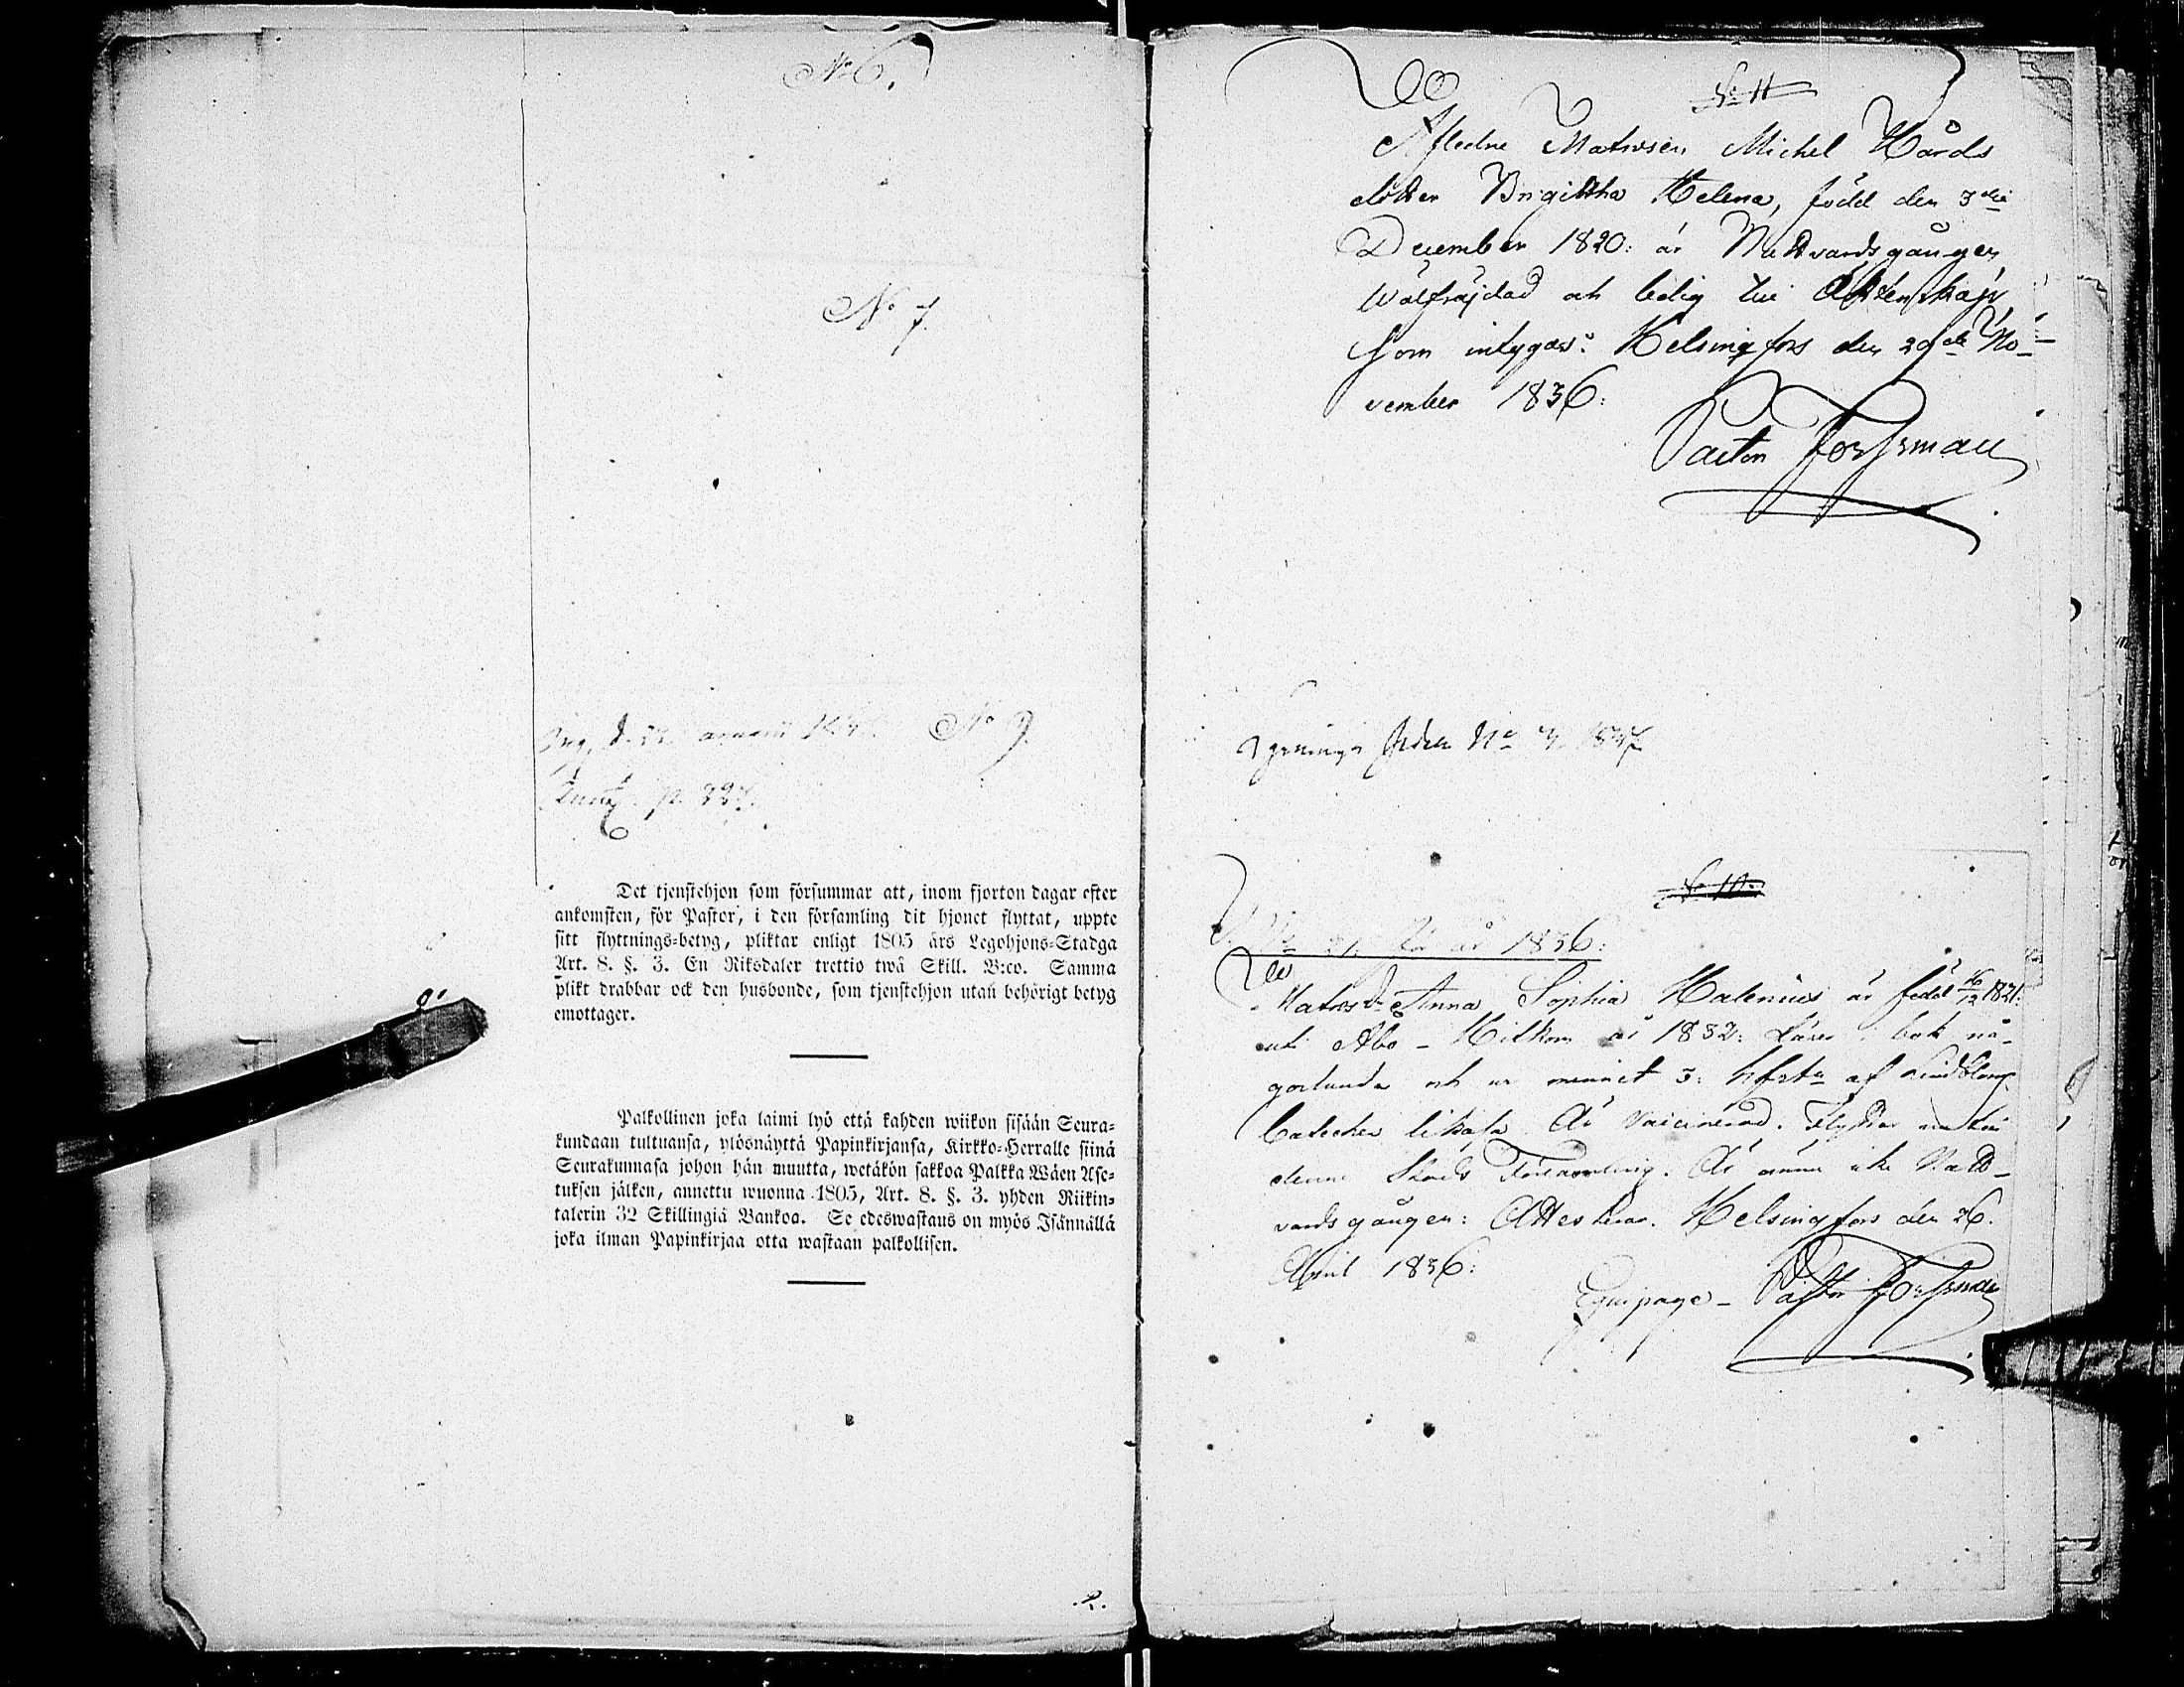 No 6.
No 7.
No 9.
p. 227.
Det tjenstehjon som försummar att, inom fjorton dagar efter
ankomsten, för Pastor, i den församling dit hjonet flyttat, uppte
sitt flyttnings-betyg, pliktar enligt 1805 års Legohjons-Stadga
Art. 8. §. 3. En Riksdaler trettio twå Skill. B:co. Samma
plikt drabbar ock den husbonde, som tjenstehjon utan behörigt betyg
emottager.
Palkollinen joka laimi lyö että kahden wiikon sisään Seura-
kundaan tultuansa, ylösnäyttä Papinkirjansa, Kirkko-Herralle siinä
Seurakunnasa johon hän muutta, wetäkön sakkoa Palkka Wäen Ase-
tuksen jälken, annettu wuonna 1805, Art. 8. §. 3. yhden Riikin-
talerin 32 Skillingiä Bankoa. Se edeswastaus on myös Isännällä
joka ilman Papinkirjaa otta wastaan palkollisen.
No 11
Afledne Matrosen Michel Hårds
dotter Brigittha Helena, född den 3die
December 1820: är Nattvardsgången
Wälfräjdad och ledig till Äktenskap,
Som intygas: Helsingfors den 29de No-
vember 1836:
Pastor Forssman
No 1837
No 10
år 1836:
Anna Sophia Malenius är född 1821:
uti Åbo - Hitkom år 1832: Läser i bok nå-
gorlunda och ur minnet 3: af Lindbloms
Cateches likaså. Är Vaccinerad. Flyttar
denne Stads Församling. Är ännu icke Natt-
vardsgången: Attesterar. Helsingfors den 26.
April 1836:
Equipage - Pastor Forssman